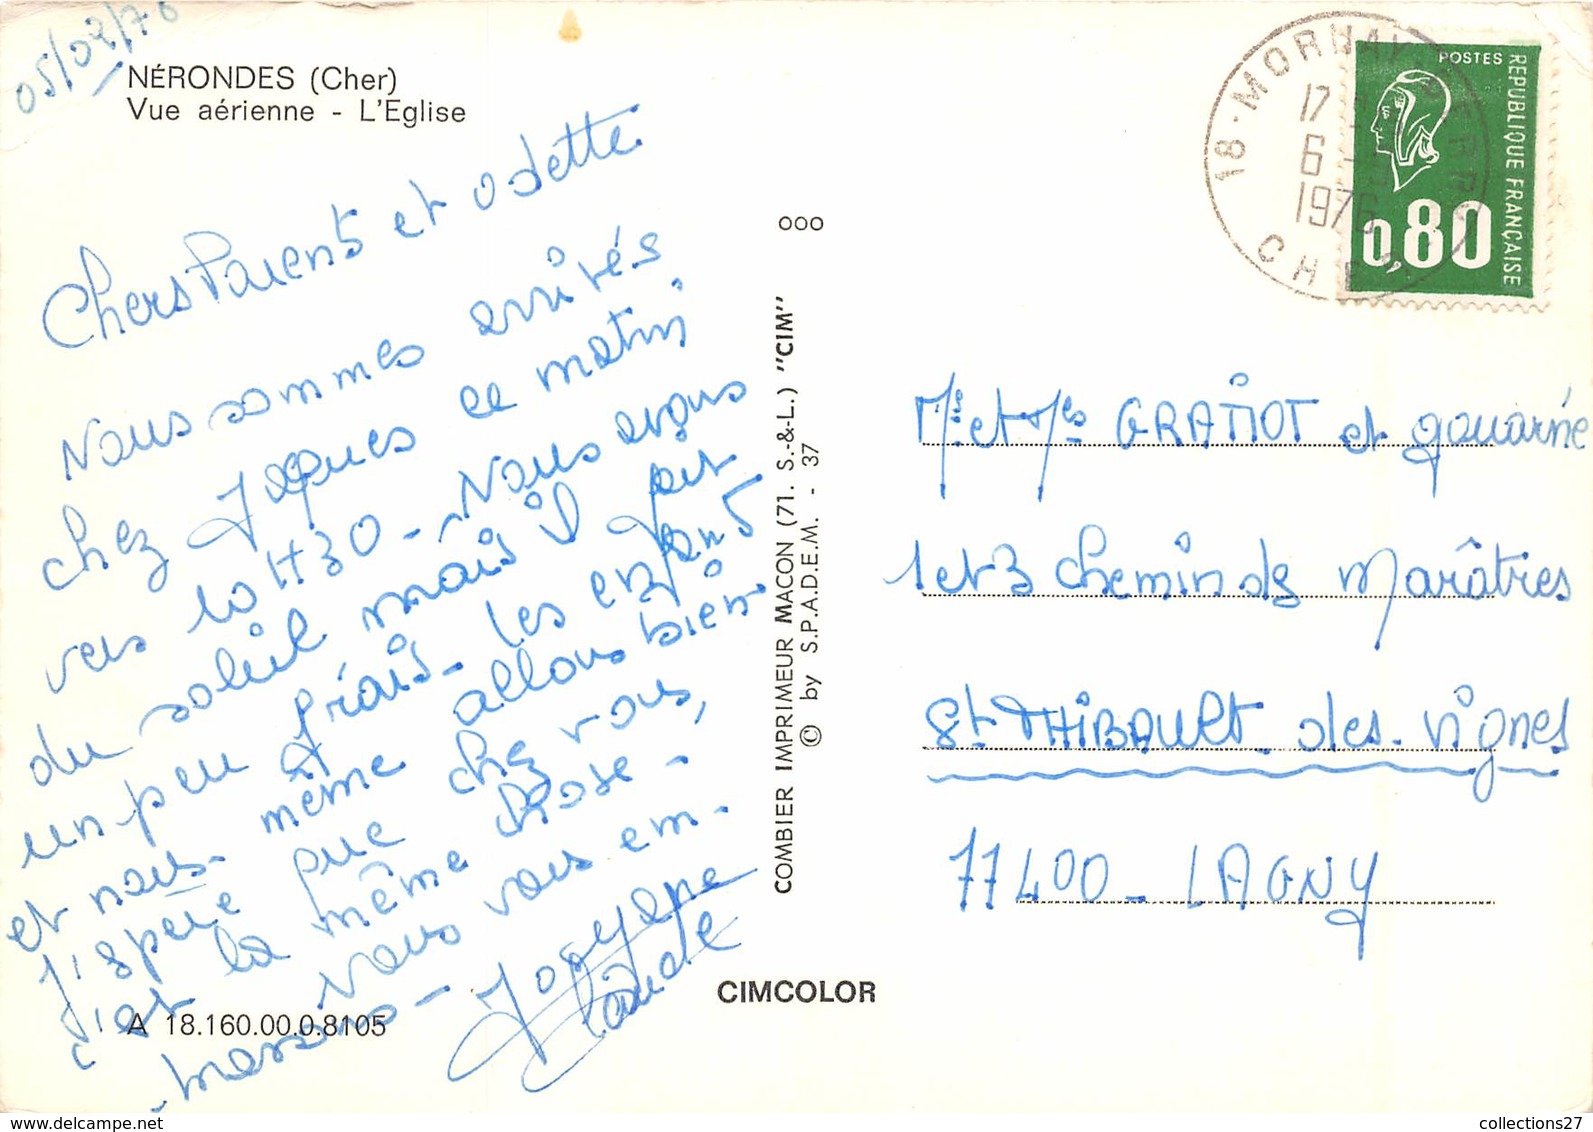 05/02/76
NÉRONDES (Cher)
Vue aérienne - L'Eglise
Chers Parents et Odette
Nous sommes arrivés
chez Jacques ce matin.
vers 10H30 - Nous avons
du soleil mais il fait
un peu frais - les enfants
et nous-même allons bien -
J'espère que chez vous,
c'est la même chose -
Nous vous em-
brassons -
Josyane
Claude
A 18.160.00.0.8105
ooo
COMBIER IMPRIMEUR MACON (71. S.-&-L.) "CIM"
© by S.P.A.D.E.M. - 37
CIMCOLOR
18 - MORNAY BERRY
17
6 -
1976
CHER
POSTES
REPUBLIQUE FRANÇAISE
0,80
Mrs et Mes GRATIOT et Gouarné
1 et 3 chemin des Marâtres
St THIBAULT - des - Vignes
77400 - LAGNY
collections27